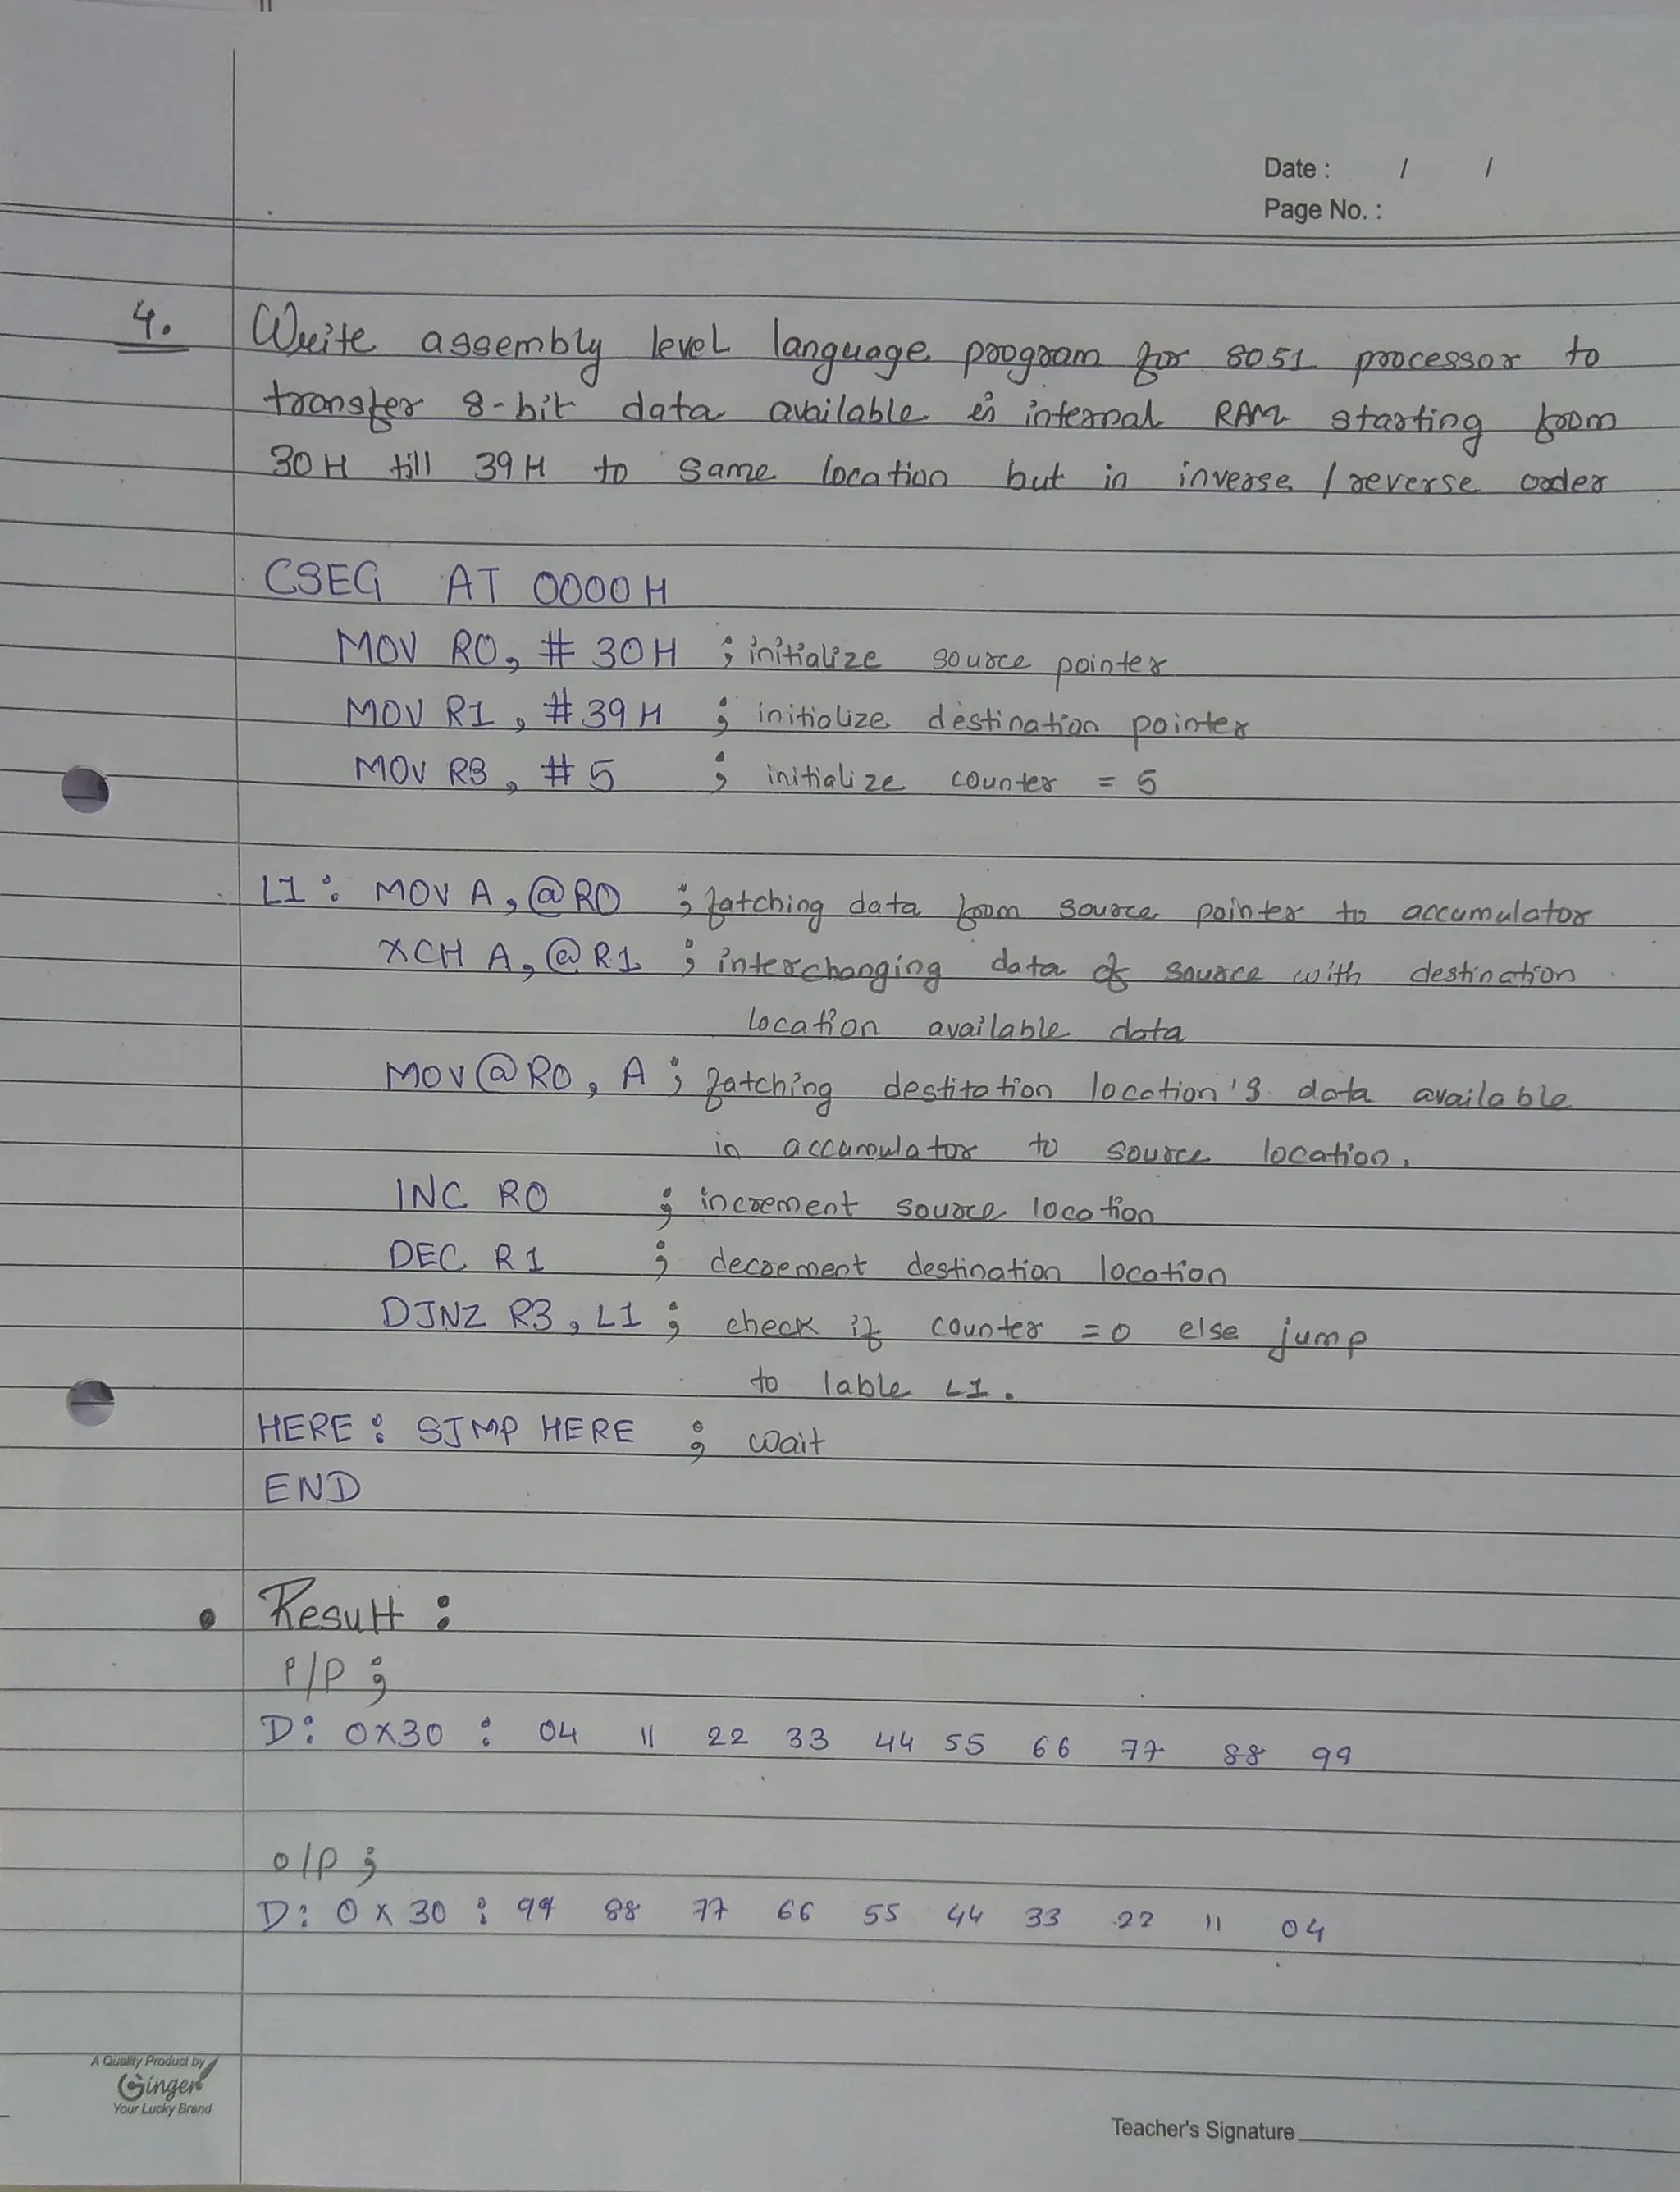 Date : / /
Page No. :
4. Write assembly level language program for 8051 processor to
transfer 8-bit data available in internal RAM starting from
30H till 39H to same location but in inverse / reverse order
CSEG AT 0000H
MOV R0, # 30H ; initialize source pointer
MOV R1, #39H ; initialize destination pointer
MOV R3, #5 ; initialize counter = 5
L1: MOV A, @R0 ; fatching data from source pointer to accumulator
XCH A, @R1 ; interchanging data of source with destination
location available data
MOV @R0, A ; fatching destitation location's data available
in accumulator to source location.
INC R0 ; increment source location
DEC R1 ; decrement destination location
DJNZ R3, L1 ; check if counter =0 else jump
to lable L1.
HERE : SJMP HERE ; wait
END
• Result :
I/P ;
D: 0X30 : 04 11 22 33 44 55 66 77 88 99
O/P ;
D: 0X30 : 99 88 77 66 55 44 33 22 11 04
A Quality Product by
Ginger
Your Lucky Brand
Teacher's Signature